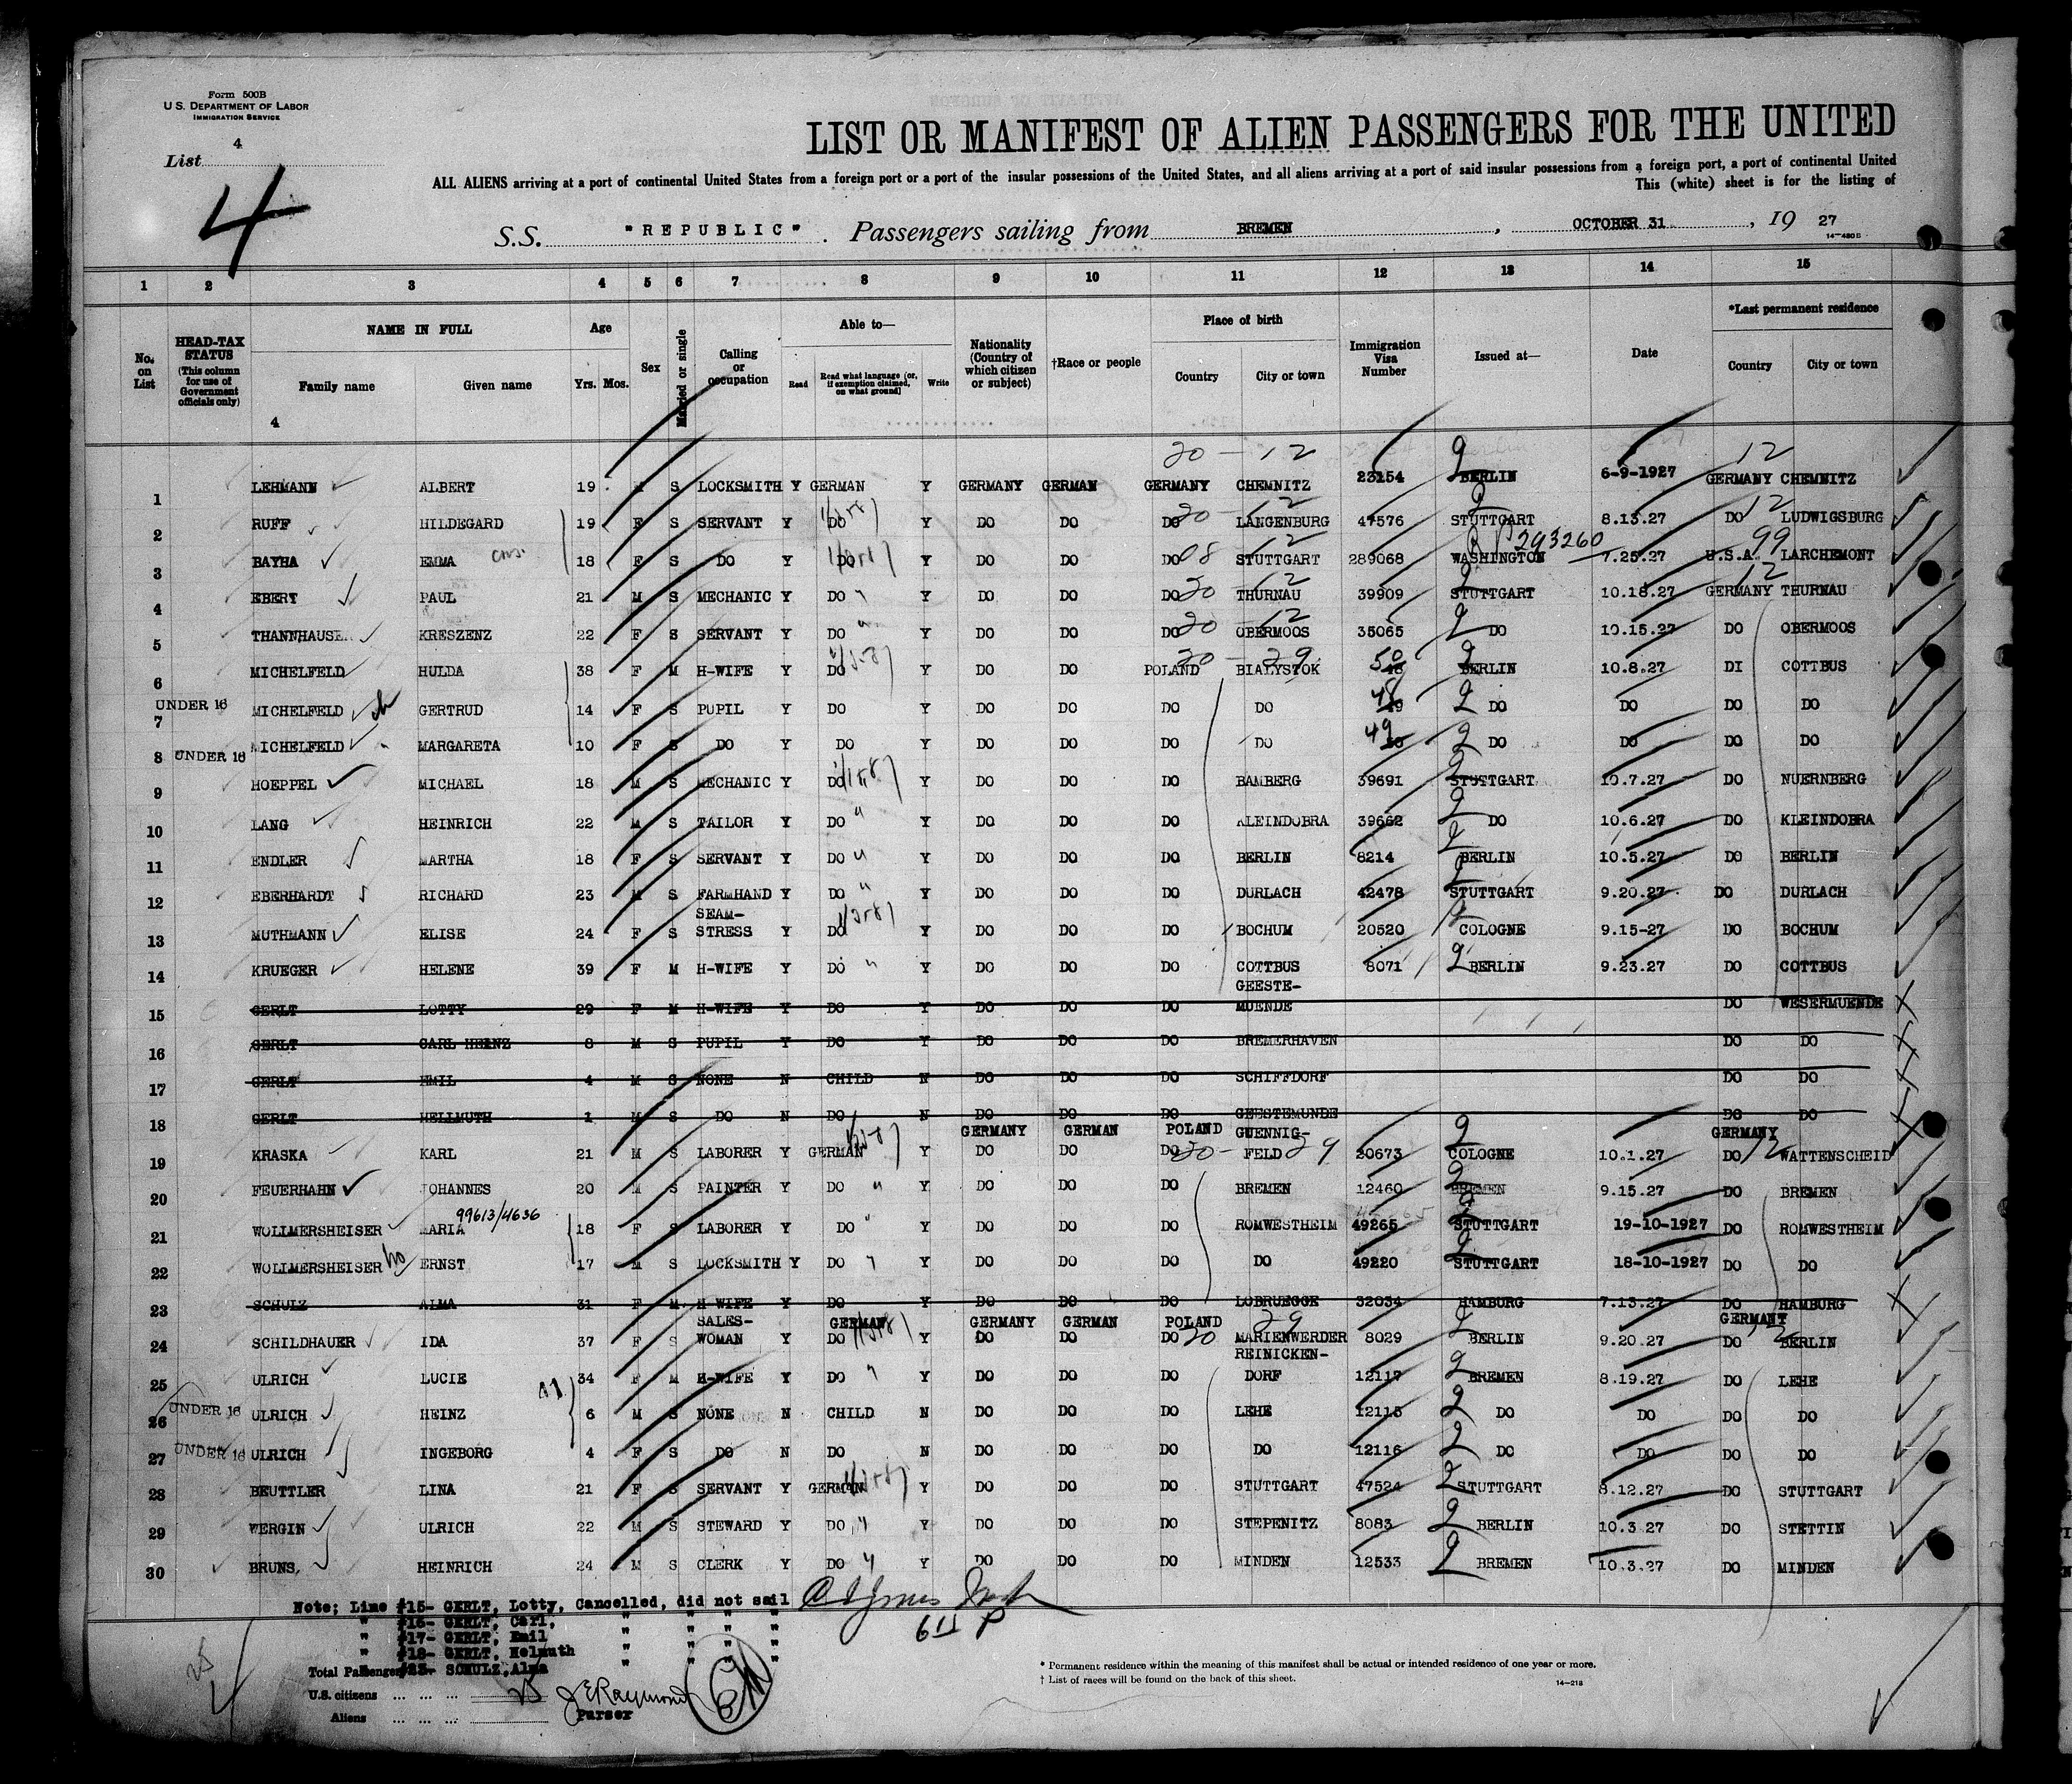 Form 500B
U.S. DEPARTMENT OF LABOR
IMMIGRATION SERVICE
List 4
4
LIST OR MANIFEST OF ALIEN PASSENGERS FOR THE UNITED
ALL ALIENS arriving at a port of continental United States from a foreign port or a port of the insular possessions of the United States, and all aliens arriving at a port of said insular possessions from a foreign port, a port of continental United
This (white) sheet is for the listing of
S.S. "REPUBLIC". Passengers sailing from BREMEN, OCTOBER 31, 19 27
1 2 3 4 5 6 7 8 9 10 11 12 13 14 15
No. on List
HEAD-TAX STATUS (This column for use of Government officials only)
NAME IN FULL
Family name Given name
Age
Yrs. Mos.
Sex
Married or single
Calling or occupation
Able to—
Read Read what language (or, if exemption claimed, on what ground) Write
Nationality (Country of which citizen or subject)
†Race or people
Place of birth
Country City or town
Immigration Visa Number
Issued at—
Date
*Last permanent residence
Country City or town
4
20 - 12 12
1 LEHMANN ALBERT 19 M S LOCKSMITH Y GERMAN Y GERMANY GERMAN GERMANY CHEMNITZ 23154 BERLIN 6-9-1927 GERMANY CHEMNITZ
2 RUFF HILDEGARD 19 F S SERVANT Y DO Y DO DO DO LANGENBURG 47576 STUTTGART 8.13.27 DO LUDWIGSBURG
RP 293260 99
3 BAYHA EMMA 18 F S DO Y DO Y DO DO DO STUTTGART 289068 WASHINGTON 7.25.27 U.S.A. LARCHEMONT
4 EBERT PAUL 21 M S MECHANIC Y DO Y DO DO DO THURNAU 39909 STUTTGART 10.18.27 GERMANY THURNAU
5 THANNHAUSER KRESZENZ 22 F S SERVANT Y DO Y DO DO DO OBERMOOS 35065 DO 10.15.27 DO OBERMOOS
6 MICHELFELD HULDA 38 F M H-WIFE Y DO Y DO DO POLAND BIALYSTOK 50 BERLIN 10.8.27 DI COTTBUS
UNDER 16
7 MICHELFELD GERTRUD 14 F S PUPIL Y DO Y DO DO DO DO 48 DO DO DO DO
8 UNDER 16 MICHELFELD MARGARETA 10 F S DO Y DO Y DO DO DO DO 49 DO DO DO DO
9 HOEPPEL MICHAEL 18 M S MECHANIC Y DO Y DO DO DO BAMBERG 39691 STUTTGART 10.7.27 DO NUERNBERG
10 LANG HEINRICH 22 M S TAILOR Y DO Y DO DO DO KLEINDOBRA 39662 DO 10.6.27 DO KLEINDOBRA
11 ENDLER MARTHA 18 F S SERVANT Y DO Y DO DO DO BERLIN 8214 BERLIN 10.5.27 DO BERLIN
12 EBERHARDT RICHARD 23 M S FARMHAND Y DO Y DO DO DO DURLACH 42478 STUTTGART 9.20.27 DO DURLACH
SEAM-
13 MUTHMANN ELISE 24 F S STRESS Y DO Y DO DO DO BOCHUM 20520 COLOGNE 9.15-27 DO BOCHUM
14 KRUEGER HELENE 39 F M H-WIFE Y DO Y DO DO DO COTTBUS 8071 BERLIN 9.23.27 DO COTTBUS
GEESTE-
15 GERLT LOTTY 29 F M H-WIFE Y DO Y DO DO DO MUENDE DO WESERMUENDE
16 GERLT CARL HEINZ 8 M S PUPIL Y DO Y DO DO DO BREMERHAVEN DO DO
17 GERLT EMIL 4 M S NONE N CHILD N DO DO DO SCHIFFDORF DO DO
18 GERLT HELLMUTH 1 M S DO N DO N DO DO DO GEESTEMUNDE DO DO
GERMANY GERMAN POLAND GUENNIG- GERMANY
19 KRASKA KARL 21 M S LABORER Y GERMAN Y DO DO DO FELD 29 20673 COLOGNE 10.1.27 DO WATTENSCHEID
20 FEUERHAHN JOHANNES 20 M S PAINTER Y DO Y DO DO DO BREMEN 12460 BREMEN 9.15.27 DO BREMEN
99613/4636
21 WOLLMERSHEISER MARIA 18 F S LABORER Y DO Y DO DO DO ROMWESTHEIM 49265 STUTTGART 19-10-1927 DO ROMWESTHEIM
22 WOLLMERSHEISER ERNST 17 M S LOCKSMITH Y DO Y DO DO DO DO 49220 STUTTGART 18-10-1927 DO DO
23 SCHULZ ALMA 31 F M H-WIFE Y DO Y DO DO DO LOBRUEGGE 32034 HAMBURG 7.13.27 DO HAMBURG
SALES- GERMAN GERMANY GERMAN POLAND 29 GERMANY
24 SCHILDHAUER IDA 37 F S WOMAN Y DO Y DO DO DO MARIENWERDER 8029 BERLIN 9.20.27 DO BERLIN
REINICKEN-
25 ULRICH LUCIE 34 F M H-WIFE Y DO Y DO DO DO DORF 12117 BREMEN 8.19.27 DO LEHE
26 UNDER 16 ULRICH HEINZ 6 M S NONE N CHILD N DO DO DO LEHE 12115 DO DO DO DO
27 UNDER 16 ULRICH INGEBORG 4 F S DO N DO N DO DO DO DO 12116 DO DO DO DO
28 BEUTTLER LINA 21 F S SERVANT Y GERMAN Y DO DO DO STUTTGART 47524 STUTTGART 8.12.27 DO STUTTGART
29 WERGIN ULRICH 22 M S STEWARD Y DO Y DO DO DO STEPENITZ 8083 BERLIN 10.3.27 DO STETTIN
30 BRUNS, HEINRICH 24 M S CLERK Y DO Y DO DO DO MINDEN 12533 BREMEN 10.3.27 DO MINDEN
Note; Line #15- GERLT, Lotty, Cancelled, did not sail
" #16- GERLT, Carl, " " " "
" #17- GERLT, Emil " " " "
" #18- GERLT, Helmuth " " " "
Total Passengers #23- SCHULZ, Alma " " " "
U.S. citizens ... ... ... 25 J E Raymond
Aliens ... ... ... Purser
* Permanent residence within the meaning of this manifest shall be actual or intended residence of one year or more.
† List of races will be found on the back of this sheet.
14-218